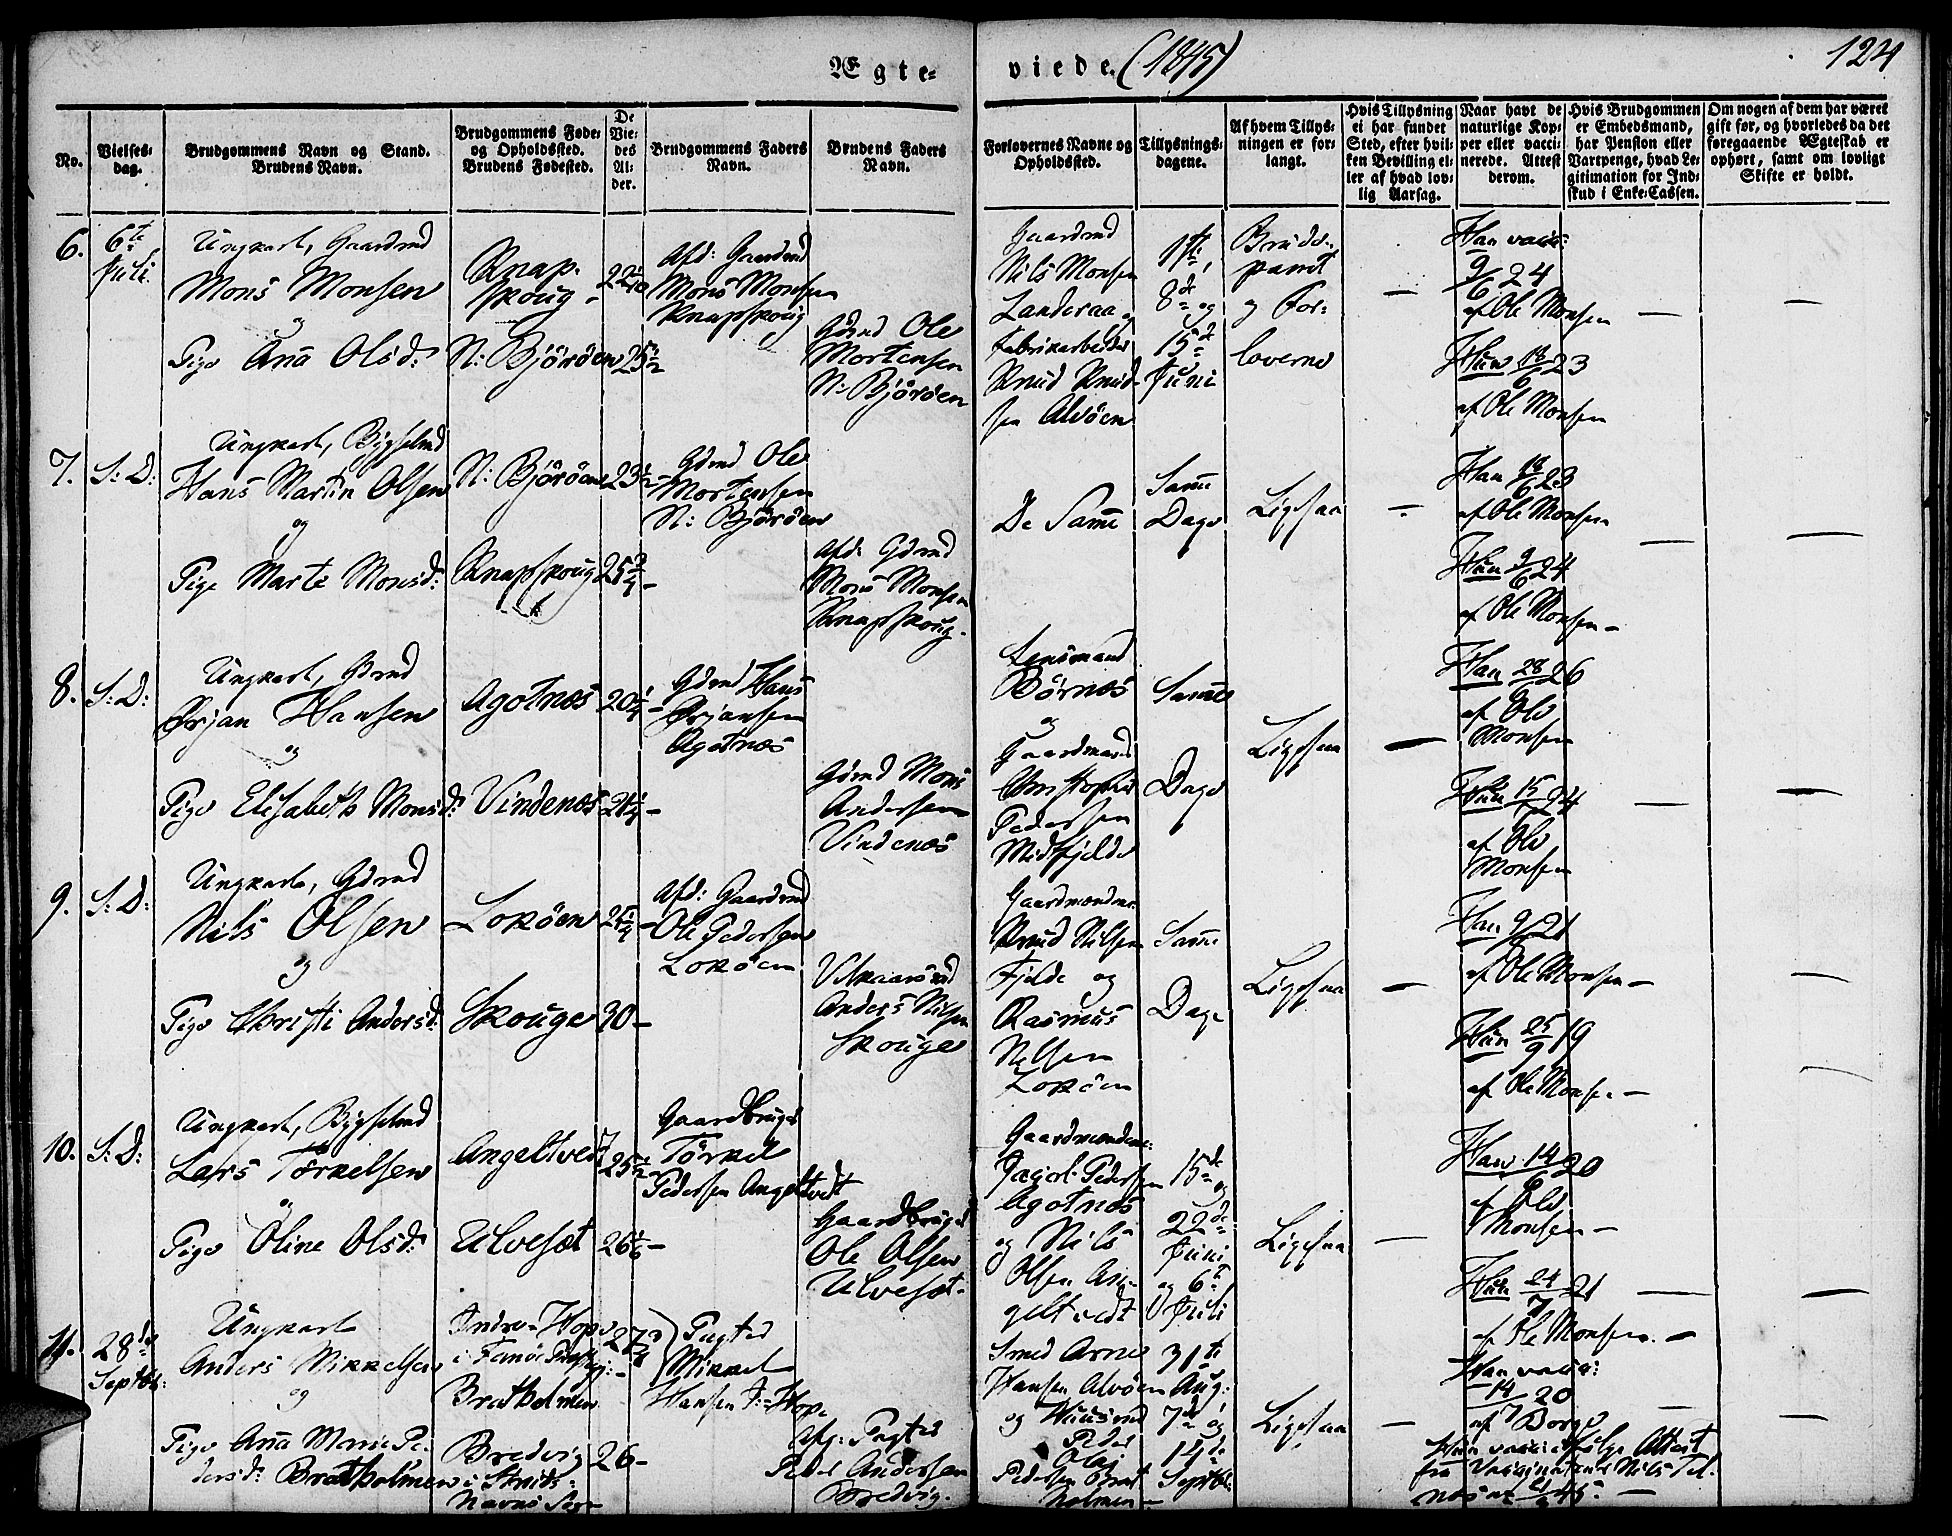 Ægte=
viede. (1845)
124
No.
Vielses-
dag.
Brudgommens Navn og Stand.
Brudens Navn.
Brudgommens Føde-
og Opholdsted.
Brudens Fødested.
De
Vie-
des
Al-
der.
Brudgommens Faders
Navn.
Brudens Faders
Navn.
Forlovernes Navne og
Opholdsted.
Tillysnings-
dagene.
Af hvem Tillys-
ningen er for-
langt.
Hvis Tillysning
ei har fundet
Sted, efter hvil-
ken Bevilling el-
ler af hvad lov-
lig Aarsag.
Naar havt de
naturlige Kop-
per eller vacci-
nerede. Attest
derom.
Hvis Brudgommen
er Embedsmand,
har Pension eller
Vartpenge, hvad Le-
gitimation for Ind-
skud i Enke-Cassen.
Om nogen af dem har været
gift før, og hvorledes da det
foregaaende Ægteskab er
ophørt, samt om lovligt
Skifte er holdt.
6.
6te
Juli
Ungkarl, Gaardmd
Mons Monsen
og
Pige Ana Olsd:
Knap-
skoug -
N: Björöen
Afd: Gaardmd
Mons Monsen
Knapskoug
Gdmd Ole
Mortensen
N: Björöen
Gaardmd
Nils Monsen
Landeraa og
Fabrikarbeider
Knud Knud-
sen Alvöen
1ste,
8de og
15de
Juni
Brude-
parret
og For-
loverne
Han vacc:
9/6 24
af Ole Monsen
Hun 18/6 23
af Ole Monsen
7.
S: D:
Ungkarl, Bygselmd
Hans Martin Olsen
og
Pige Marte Monsd:
N: Björöen
Knapskoug
23 1/2
25 3/4 -
Gdmd Ole
Mortensen
N: Björöen
Afd: Gdmd
Mons Monsen
Knapskoug.
De Same
Same
Dage
Ligesaa
Han 18/6 23
af Ole Monsen
Hun 9/6 24
af Ole Monsen -
8.
S: D:
Ungkarl, Gdmd
Ørjan Hansen
og
Pige Elisabeth Monsd:
Agotnæs
Vindenæs
20 1/4 -
21 1/4 -
Gdmd Hans
Ørjansen
Agotnæs
Gdmd Mons
Andersen
Vindenæs
Lensmand
Börnæs
og
Gaardmand
Christopher
Pedersen
Midtfjelde
Same
Dage
Ligesaa
Han 28/6 26
af Ole
Monsen
Hun 15/7 24
af Ole
Monsen
9.
S: D:
Ungkarl, Gdmd
Nils Olsen
og
Pige Christi Andersd:
Loköen
Skouge
25 1/4
30 -
Afd: Gaardmd
Ole Pedersen
Loköen
Anders Nilsen
Skouge
Gaardmændene
Knud Nilsen
Fjelde og
Rasmus
Nilsen
Loköen
Same
Dage
Ligesaa
Han 9/6 21
af Ole Monsen -
Hun 25/9 19
af Ole Monsen -
10.
S: D:
Ungkarl, Bygselmd
Lars Törkelsen
og
Pige Oline Olsd:
Angeltvedt
Ulvesæt
25 1/2
26 1/6 -
Gaardbruger
Törkel
Pedersen Angeltvedt
Gaardbruger
Ole Olsen
Ulvesæt -
Gaardmændene:
Jacob Pedersen
Agotnæs
og Nils
Olsen An-
geltvedt
15de og
22de
Juni
og 6te
Juli
Ligesaa
Han 14/6 20
af Ole
Monsen -
Hun 24/7 21
af Ole Monsen -
11.
28de
Septbr:
Ungkarl
Anders Mikkelsen
og
Pige Ana Marie Pe-
dersd: Bratholmen
Indre-Hope
Bratholmen
Bredvig
27 3/4
26 -
Pagter
Mikkel
Hansen I: Hope
Afg: Pagter
Peder Andersen
Bredvig.
Smed Arne
Hansen Alvöen
og Huusmd
Peder
Pedersen Brat-
holmen -
31te
Aug:
7de og
14de
Septbr:
Ligesaa
Han vacc:
14/7 20
af Borge
Hun vacc: ifölge Attest
fra Vaccinateur Nils Tel-
næs